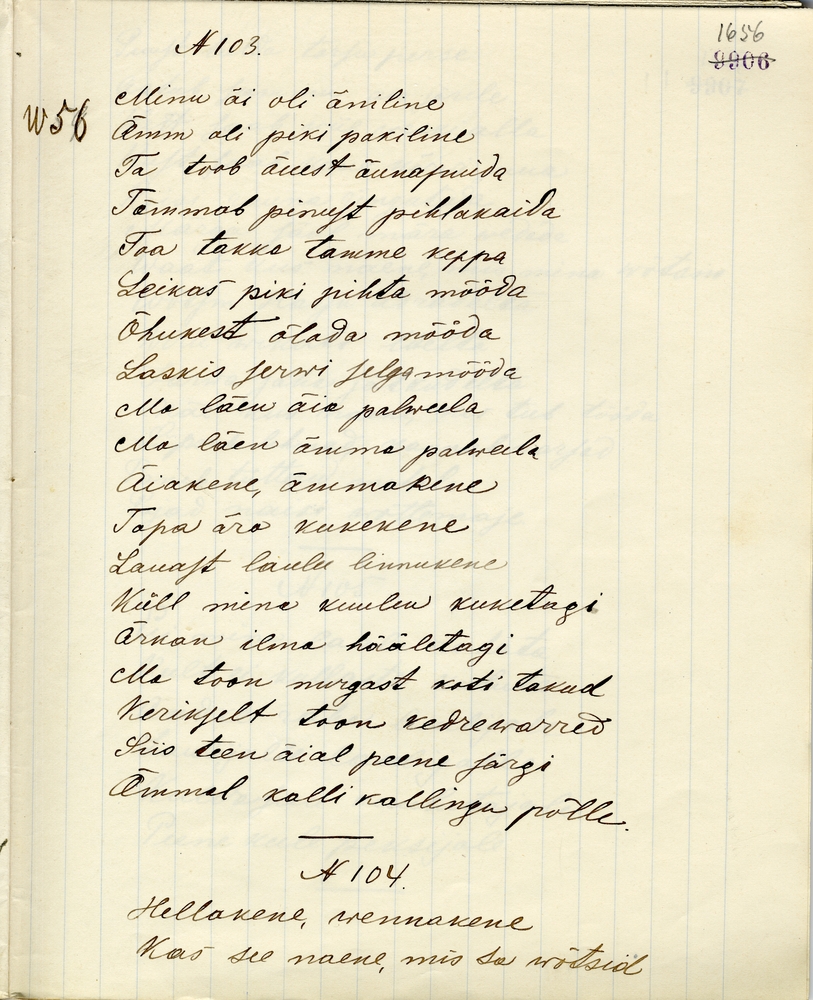 N 103.
1656
9906
W56
Minu äi oli äniline
Ämm oli piki pakiline
Ta toob äuest äunapuida
Tõmmab pinust pihlakaida
Toa takka tamme keppa
Leikas piki pihta mööda
Õhukest õlada mööda
Laskis serwi selga mööda
Ma läen äia palweela
Ma läen ämma palweela
Äiakene, ämmakene
Tapa ära kukekene
Lauast laulu linnukene
Küll mina kuulen kuketagi
Ärkan ilma hääletagi
Ma toon nurgast koti takud
Kerikselt toon kedrewarred
Siis teen äial peene särgi
Ämmal kalli kallingu põlle.
N 104.
Hellakene, wennakene
Kas see naene, mis sa wõtsid